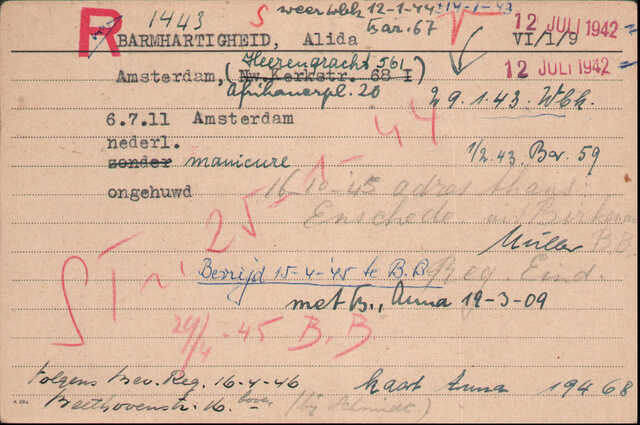 R 1443 S weer Wbk 12-1-44 14-1-43 12 JULI 1942
bar. 67
BARMHARTIGHEID, Alida VI/1/9
Heerengracht 561 12 JULI 1942
Amsterdam, (Nw.Kerkstr. 68 I)
Afrikanerpl. 20 29.1.43. Wbk.
6.7.11 Amsterdam
nederl. 1/2.43. Bar. 59
zonder manicure
ongehuwd 16-10-45 adres thans:
Enschede
Müller B.B.
ST 25-1-44
Bevrijd 15-4-'45 te B.B. Reg. Eind.
met B., Anna 19-3-09
29/4-45 B.B.
Volgens Bev. Reg. 16-4-46 kaart Anna 19468
Beethovenstr. boven (bij Schmidt)